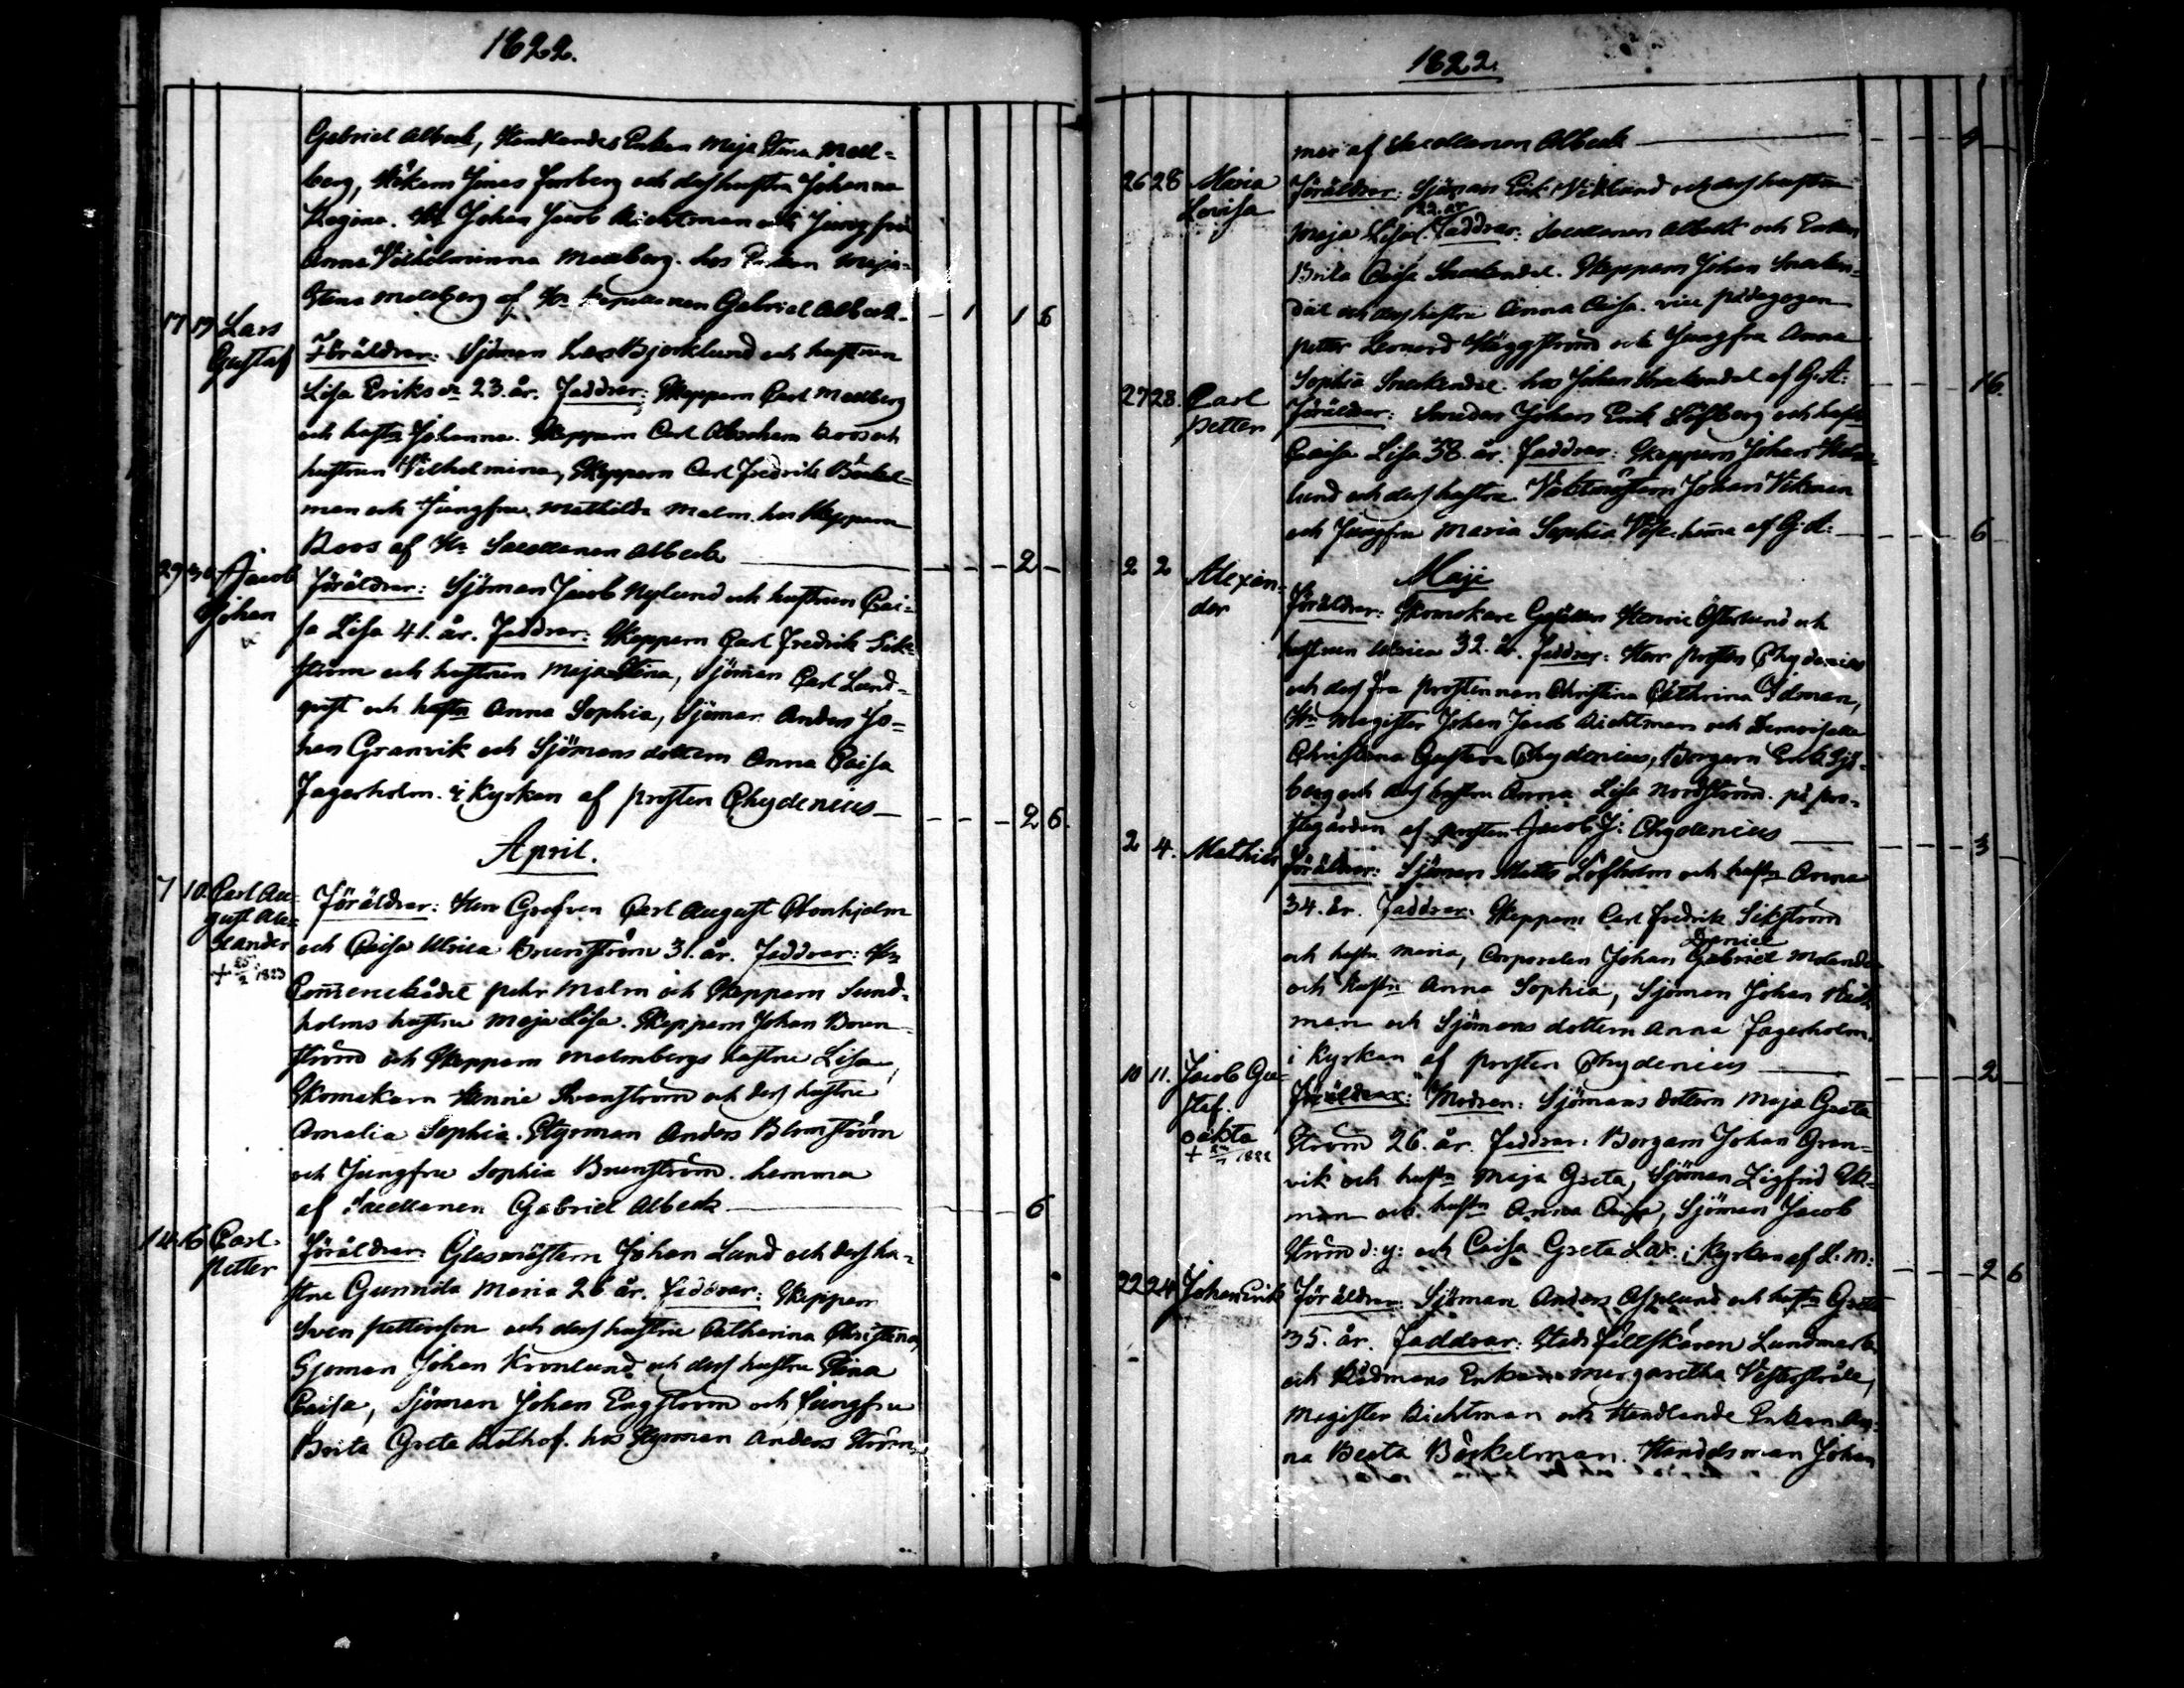 1822.
Gabriel Albeck, Handlandes Enkan Maja Stina Mell=
berg, Jonas Forsberg och dess hustru Johanna
Regina. Hr Johan Jacob Aichtman och Jungfru
Anna Vilhelmina Mellberg. hos Enkan Maja
Stina Mellberg af Hr Capellanen Gabriel Albeck - 1 1 6
17 19 Lars
Gustaf
Föräldrar: Sjöman Lars Bjorklund och hustrun
Lisa Eriksdr 23 år. Faddrar: Skeppern Carl Mellberg
och hustr Johanna. Skeppern Carl Abraham Roos och
hustrun Vilhelmina, Skeppern Carl Fredrik Böckel=
man och Jungfru Mathilda Malm. hos Skeppern
Roos af Hr Sacellanen Albeck - - - 2 -
29 30 Jacob
Johan
Föräldrar: Sjöman Jacob Nylund och hustrun Cai=
sa Lisa 41. år. Faddrar: Skeppern Carl Fredrik Sik=
ström och hustrun Maja Stina, Sjöman Carl Lund=
qvist och hustr Anna Sophia, Sjöman Anders Jo=
han Granvik och Sjömans dottern Anna Caisa
Fagerholm. i Kyrkan af prosten Chydenius - - - 2 6.
April.
7 10. Carl Au=
gust Ale=
xander
+ 25/2 1823
Föräldrar: Herr Grefven Carl August Cronhjelm
och Caisa Ulrica Brunström 31. år. Faddrar: Hr
Commercerådet Pehr Malm och Skeppern Sund=
holms hustru Maja Lisa. Skeppern Johan Brun=
ström och Skeppern Malmbergs hustru Lisa,
Skomakarn Henric Svanström och dess hustru
Amalia Sophia. Styrman Anders Blomström
och Jungfru Sophia Brunström. hemma
af Sacellanen Gabriel Albeck - - - 6
14 16 Carl
Petter
Föräldrar: Glasmästern Johan Lund och dess hu=
stru Gunnila Maria 26 år. Faddrar: Skeppern
Sven Petterson och dess hustru Catharina Christina,
Sjoman Johan Kronlund och dess hustru Stina
Caisa, Sjöman Johan Engström och Jungfru
Brita Greta Rothof. hos Styrman Anders Ström=
1822.
mer af Sacellanen Albeck - - - 4 -
26 28 Maria
Lovisa
Föräldrar: Sjöman Erik Viklund och dess hustru
22. år
Maja Lisa. Faddrar: Sacellanen Albeck och Enkan
Brita Caisa Snackendal. Skeppern Johan Snacken=
dal och dess hustru Anna Caisa. vice pædagogen
Petter Leonard Häggström och Jungfru Anna
Sophia Snackendal. hos Johan Snackendal af G. A: - - - 16.
27 28. Carl
Petter
Föräldrar: Smeden Johan Erik Löfberg och hustr
Caisa Lisa 38. år. Faddrar: Skeppern Johan Holm=
lund och dess hustru. Vaktmästern Johan Vikman
och Jungfru Maria Sophia hema af G. A: - - - 6
Maji
2 2 Alexan=
der
Föräldrar: Skomakare Gesällen Henric Österlund och
hustrun Ulrica 32. år. Faddrar: Herr prosten Chydenius
och dess fru prostinnan Christina Cathrina Idman,
Hr Magister Johan Jacob Aichtman och Demoiselle
Christina Gustava Chydenius, Borgarn Erik Sjö=
berg och dess hustru Anna Lisa Nordström. på pro=
stegården af prosten Jacob J: Chydenius - 3
2 4. Mathias
Föräldrar: Sjöman Matts Löfholm och hustr Anna
34. år. Faddrar: Skeppern Carl Fredrik Sikström
Daniel
och hustr Maria, Corporalen Johan Gabriel Molander
och hustr Anna Sophia, Sjöman Johan
man och Sjömans dottern Anna Fagerholm.
i Kyrkan af prosten Chydenius - - - 2 -
10 11. Jacob Gu=
staf.
oäkta
+ 1822
Föräldrar: Modren: Sjömans dottern Maja Greta
Ström 26. år. Faddrar: Borgarn Johan Gran=
vik och hustr Maja Greta, Sjöman Zigfrid Ek=
man och hustr Anna Caisa, Sjöman Jacob
Ström d: y: och Caisa Greta Lax. i Kyrkan af L. M: - - - 2 6
22 24 Johan Erik
+
Föräldrar: Sjöman Anders Asplund och hustr Greta
35. år. Faddrar: Stads Fältskären Lundmark
och Rådmans Enkan Margaretha Vesterstråle,
Magister Aichtman och Handlande Enkan An=
na Beata Böckelman. Handelsman Johan